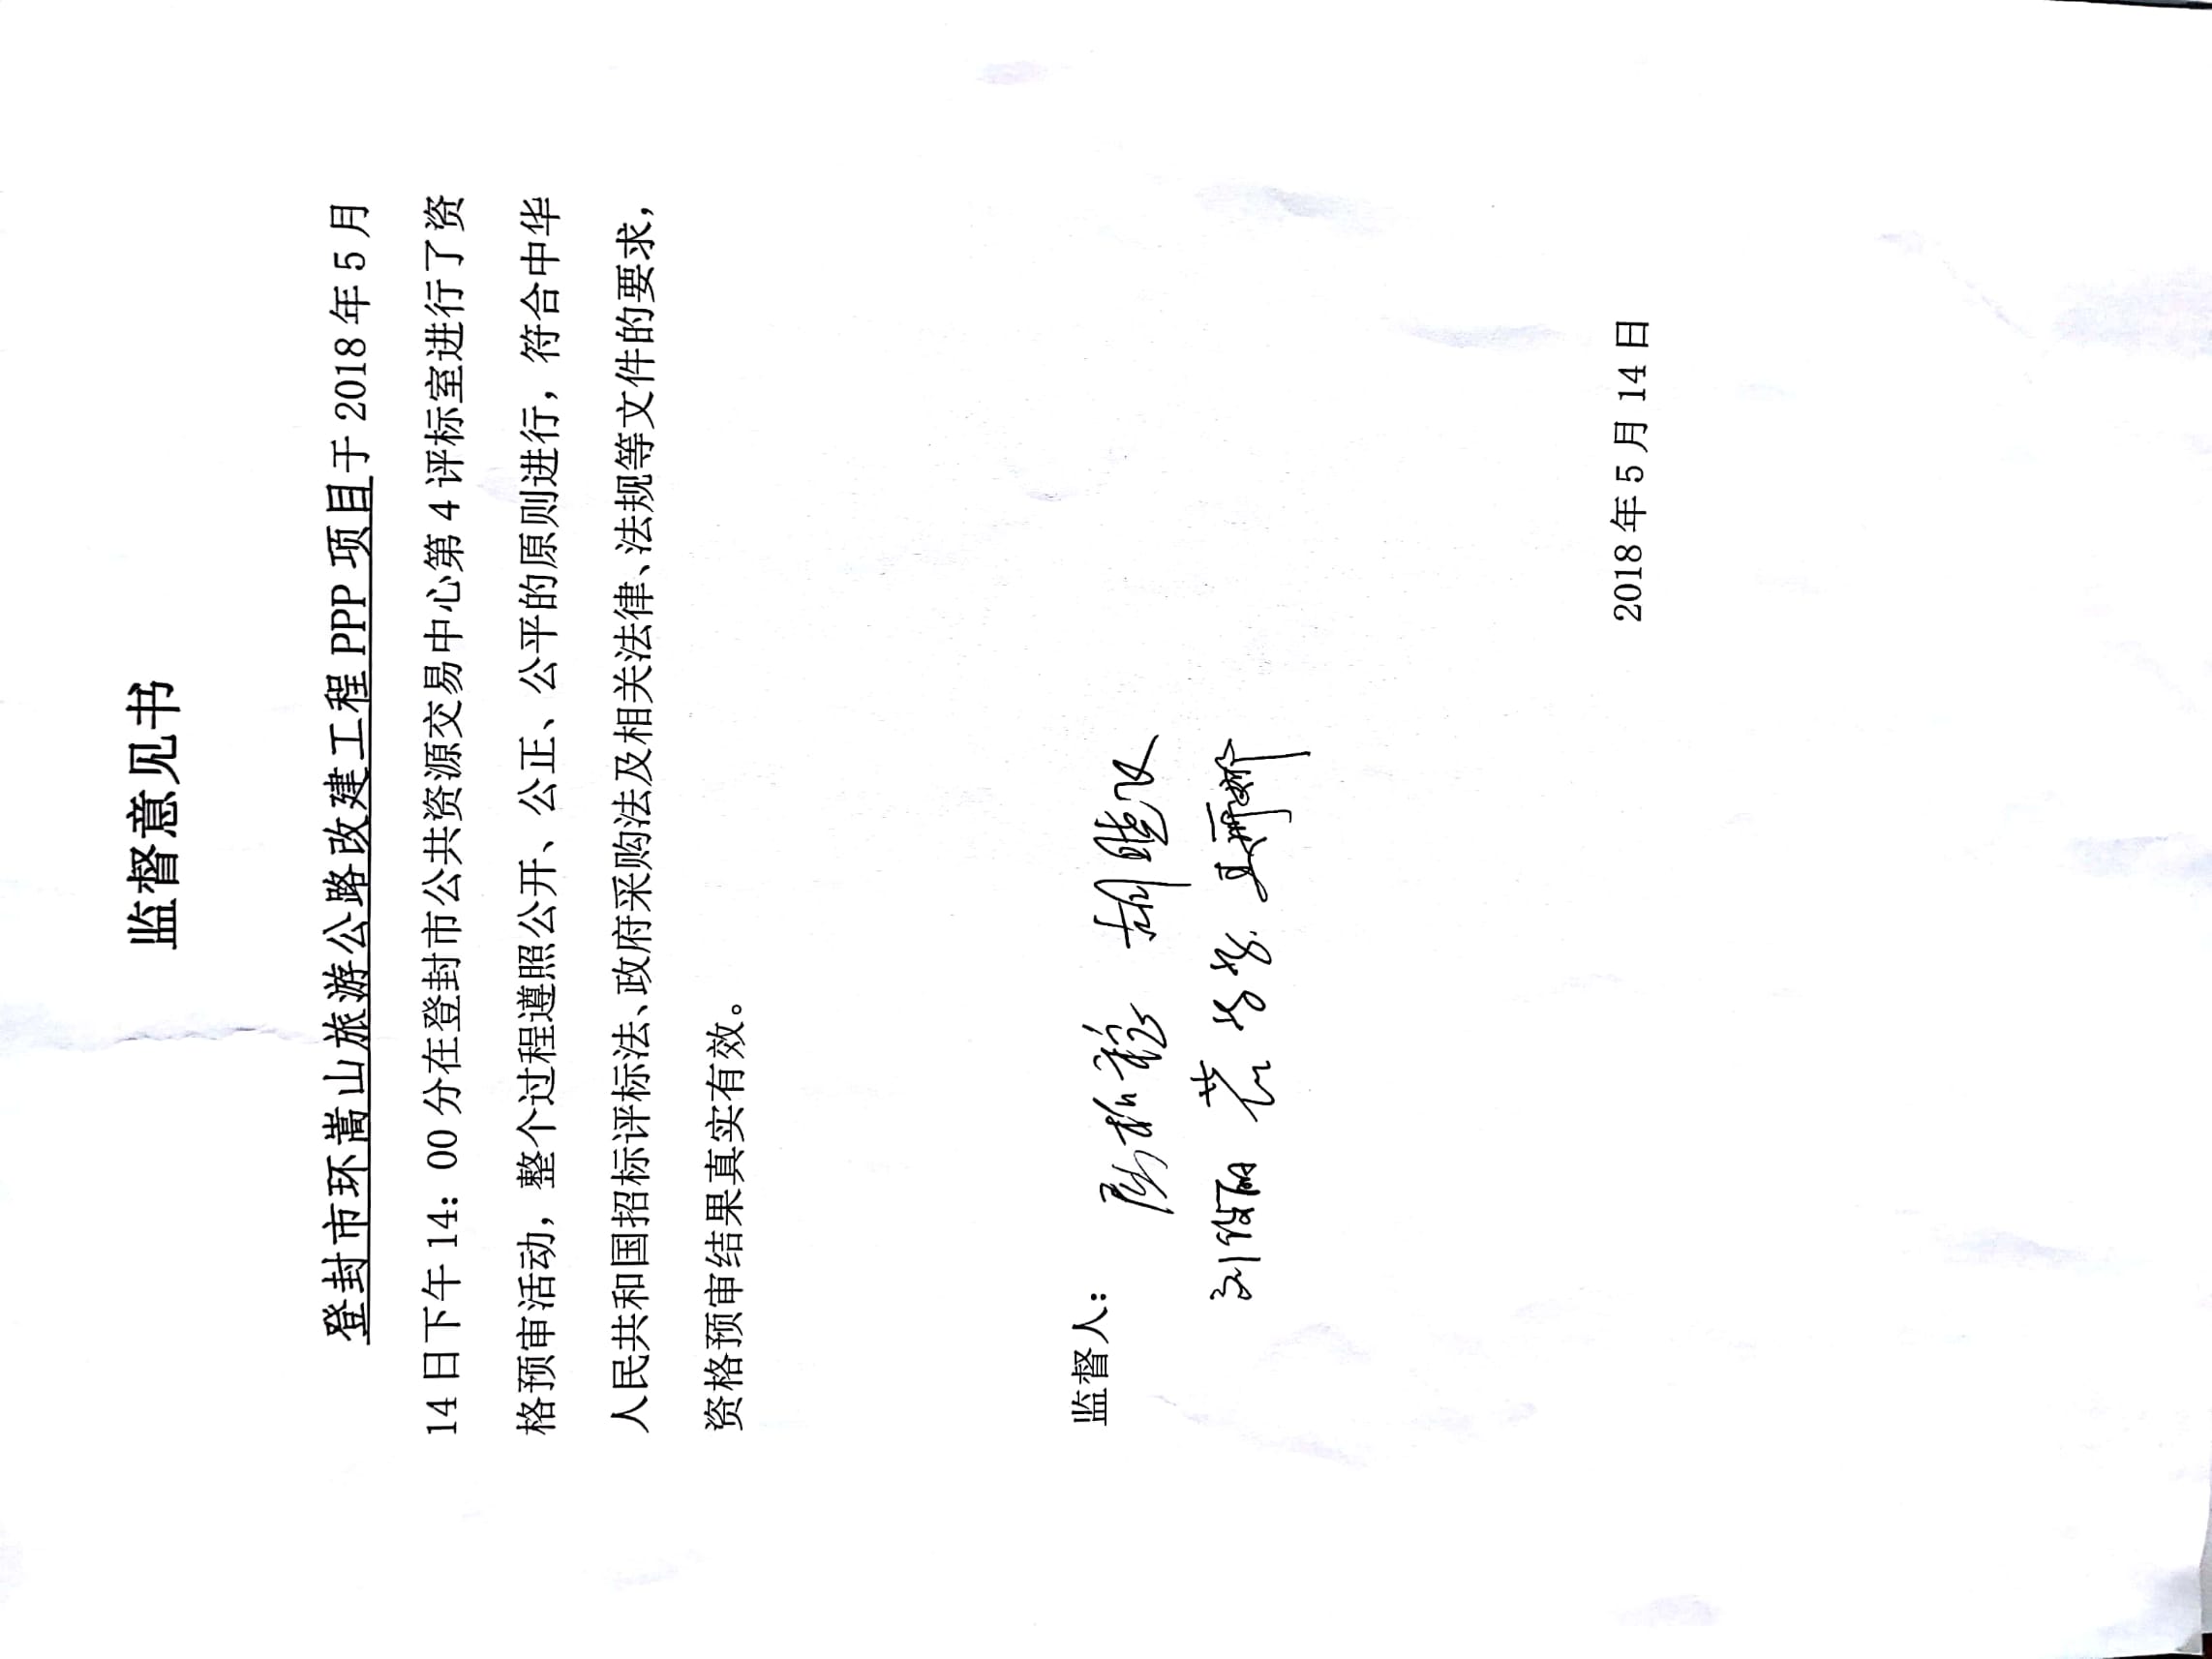 监督意见书
登封市环嵩山旅游公路改建工程 PPP 项目于 2018 年 5 月
14 日下午 14：00 分在登封市公共资源交易中心第 4 评标室进行了资
格预审活动，整个过程遵照公开、公正、公平的原则进行，符合中华
人民共和国招标评标法、政府采购法及相关法律、法规等文件的要求，
资格预审结果真实有效。
监督人：
2018 年 5 月 14 日